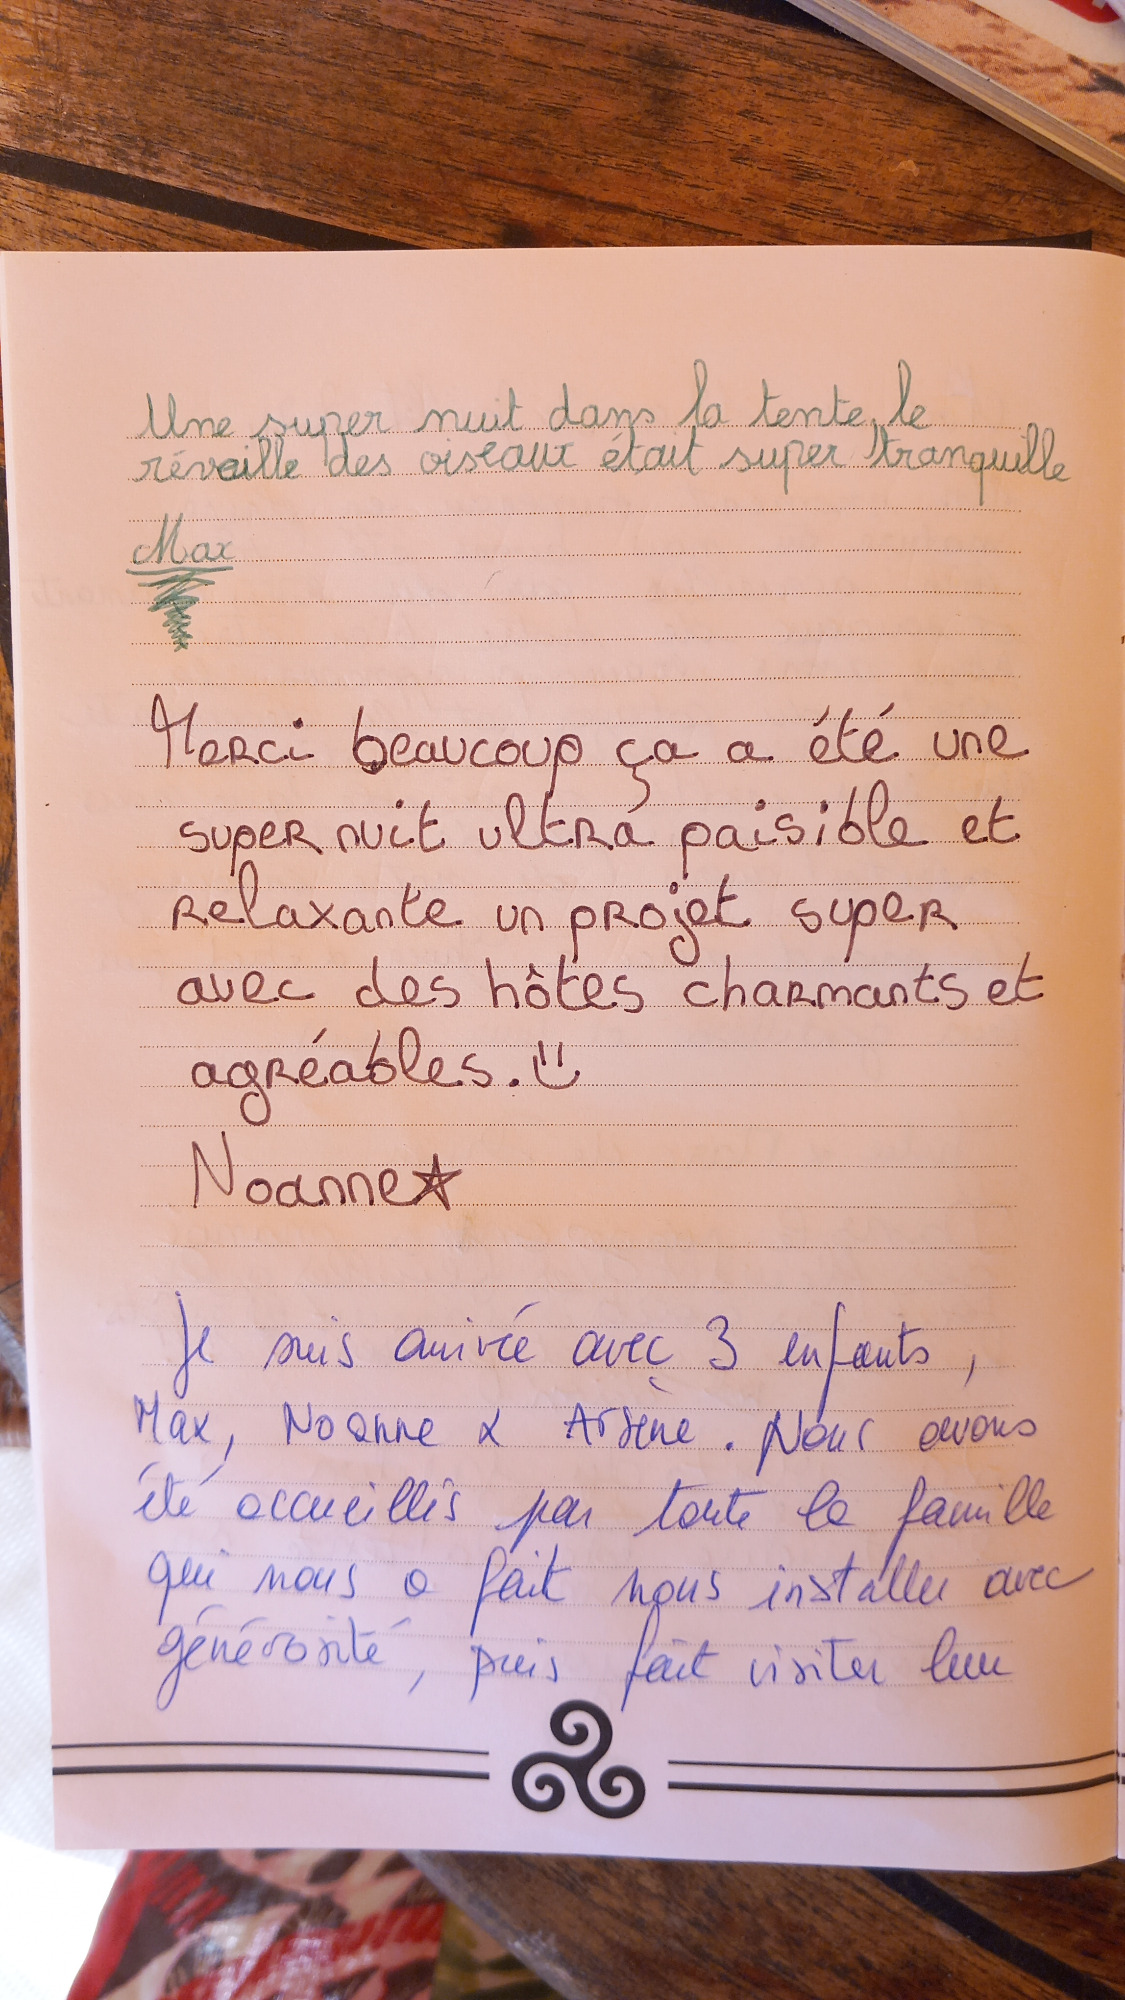 Une super nuit dans la tente, le
réveille des oiseaux était super tranquille
Max
Merci beaucoup ça a été une
super nuit ultra paisible et
relaxante un projet super
avec des hôtes charmants et
agréables.
Noanne
Je suis arrivée avec 3 enfants,
Max, Noanne & Arsène. Nous avons
été accueillis par toute la famille
qui nous a fait nous installer avec
générosité, puis fait visiter leur